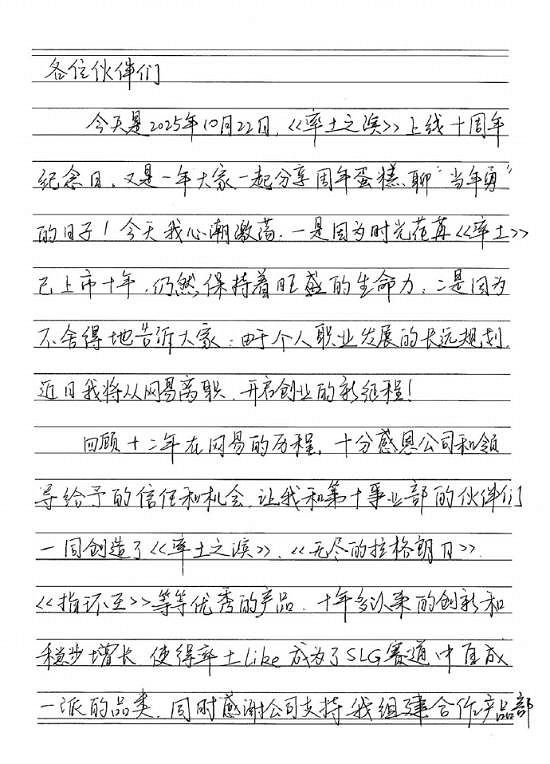 各位伙伴们
今天是2025年10月22日,《率土之滨》上线十周年
纪念日、又是一年大家一起分享周年蛋糕、聊“当年勇”
的日子！今天我心潮激荡.一是因为时光荏苒《率土》
已上市十年,仍然保持着旺盛的生命力；二是因为
不舍得地告诉大家：由于个人职业发展的长远规划,
近日我将从网易离职、开启创业的新征程！
回顾十二年在网易的历程,十分感恩公司和领
导给予的信任和机会.让我和第十事业部的伙伴们
一同创造了《率土之滨》、《无尽的拉格朗日》、
《指环王》等等优秀的产品.十年多以来的创新和
稳步增长 使得率土like成为了SLG赛道中自成
一派的品类.同时感谢公司支持我组建合作产品部